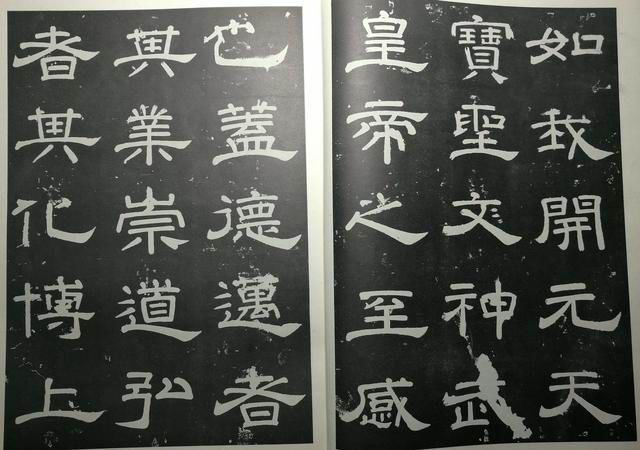 如我開元天
寶聖文神武
皇帝之至感
也蓋德邁者
其業崇道弘
者其化博上